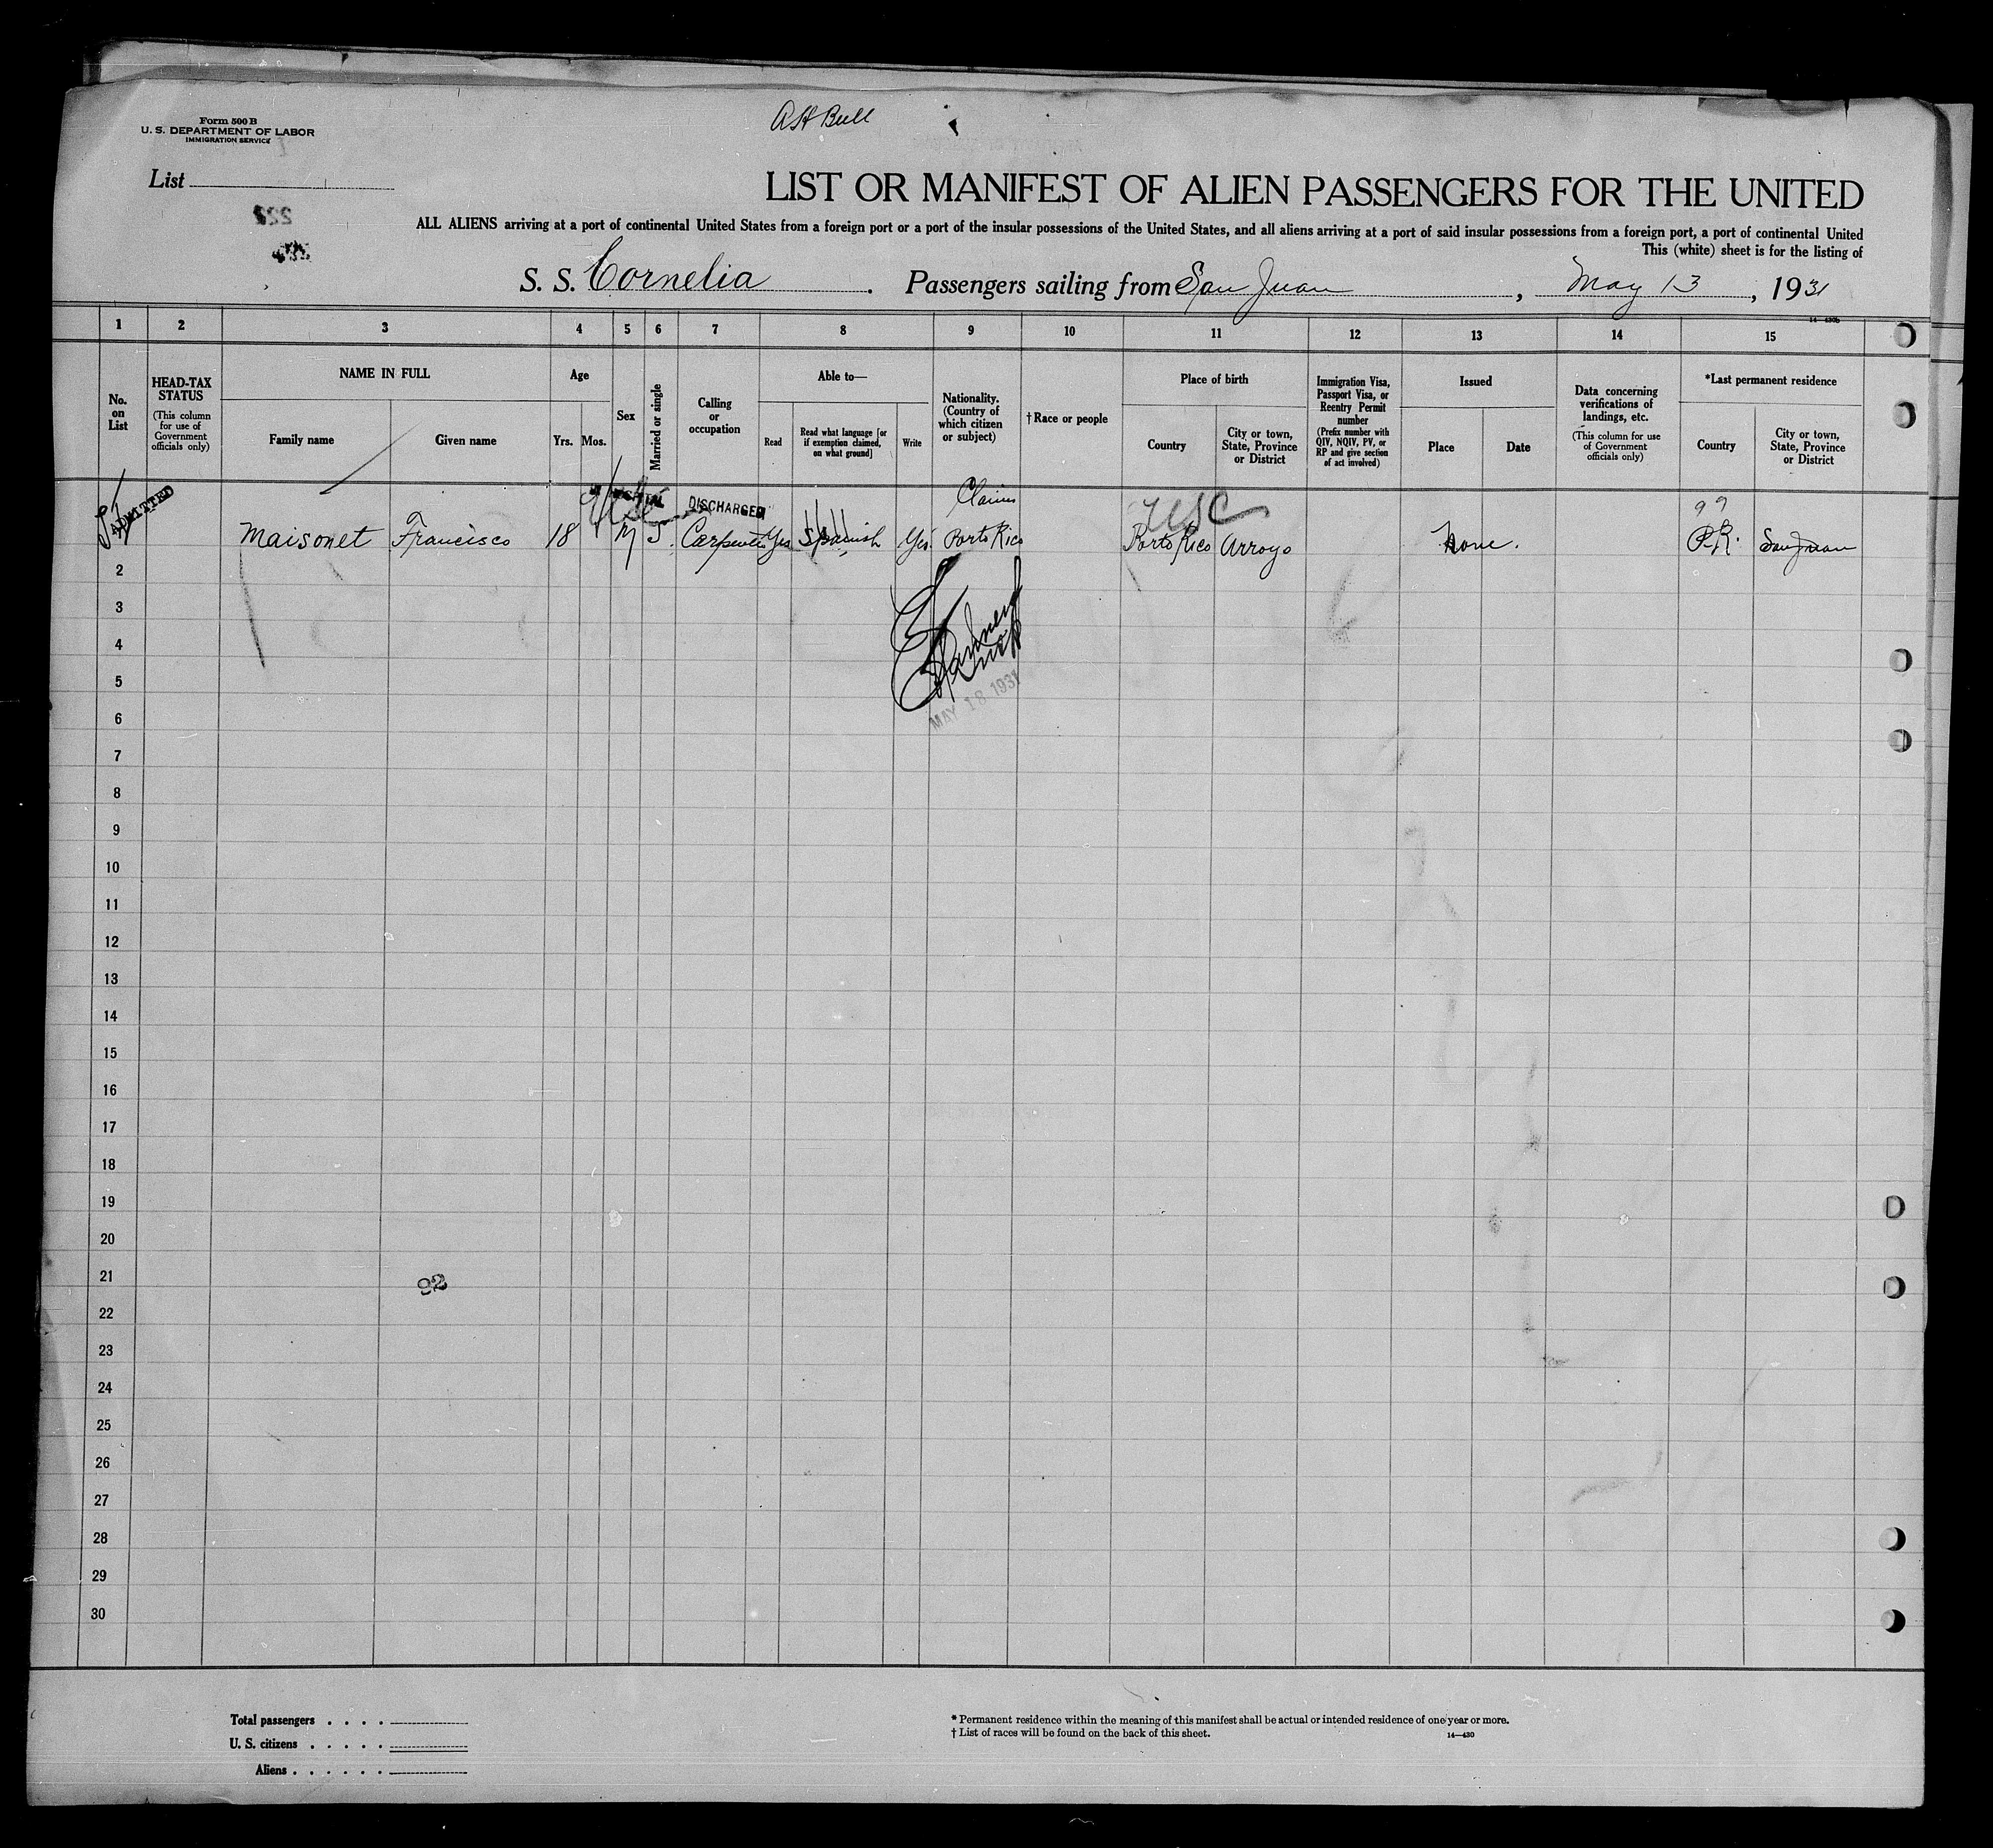 A H Bull
Form 500 B
U. S. DEPARTMENT OF LABOR
IMMIGRATION SERVICE
List
LIST OR MANIFEST OF ALIEN PASSENGERS FOR THE UNITED
ALL ALIENS arriving at a port of continental United States from a foreign port or a port of the insular possessions of the United States, and all aliens arriving at a port of said insular possessions from a foreign port, a port of continental United
This (white) sheet is for the listing of
S. S. Cornelia. Passengers sailing from San Juan, May 13, 1931
14—430b
1 2 3 4 5 6 7 8 9 10 11 12 13 14 15
No.
on
List
HEAD-TAX
STATUS
(This column
for use of
Government
officials only)
NAME IN FULL
Family name
Given name
Age
Yrs.
Mos.
Sex
Married or single
Calling
or
occupation
Able to—
Read
Read what language [or
if exemption claimed,
on what ground]
Write
Nationality.
(Country of
which citizen
or subject)
† Race or people
Place of birth
Country
City or town,
State, Province
or District
Immigration Visa,
Passport Visa, or
Reentry Permit
number
(Prefix number with
QIV, NQIV, PV, or
RP and give section
of act involved)
Issued
Place
Date
Data concerning
verifications of
landings, etc.
(This column for use
of Government
officials only)
*Last permanent residence
Country
City or town,
State, Province
or District
ADMITTED
DISCHARGED
Claims
USC
99
Maisonet Francisco 18 M S. Carpenter Yes Spanish Yes Porto Rico Porto Rico Arroyo None. P.R. San Juan
2
3
4
5
MAY 18 1931
6
7
8
9
10
11
12
13
14
15
16
17
18
19
20
21
92
22
23
24
25
26
27
28
29
30
Total passengers . . . .
U. S. citizens . . . . .
Aliens . . . . . .
* Permanent residence within the meaning of this manifest shall be actual or intended residence of one year or more.
† List of races will be found on the back of this sheet.
14—430